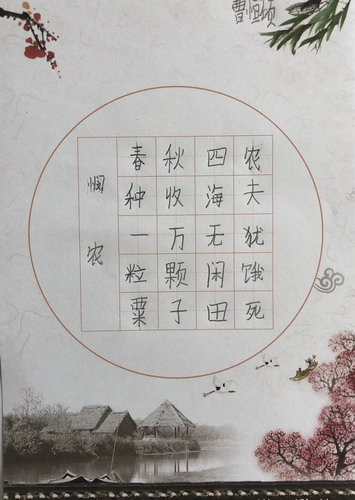 曹恒
悯农
春种一粒粟
秋收万颗子
四海无闲田
农夫犹饿死